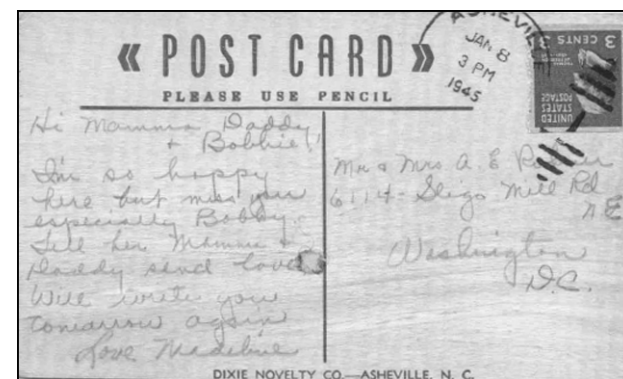 « POST CARD »
PLEASE USE PENCIL
ASHEVILLE
JAN 8
3 PM
1945
3 CENTS 3
UNITED
STATES
POSTAGE
Hi Mamma Daddy
+ Bobbie!
I'm so happy
here but miss you
especially Bobby.
Tell her Mamma &
Daddy send love
Will write you
tomorrow again
Love Madeline
Mr & Mrs A. E
6114 - Sligo Mill Rd
NE
Washington
D.C.
DIXIE NOVELTY CO.—ASHEVILLE, N. C.